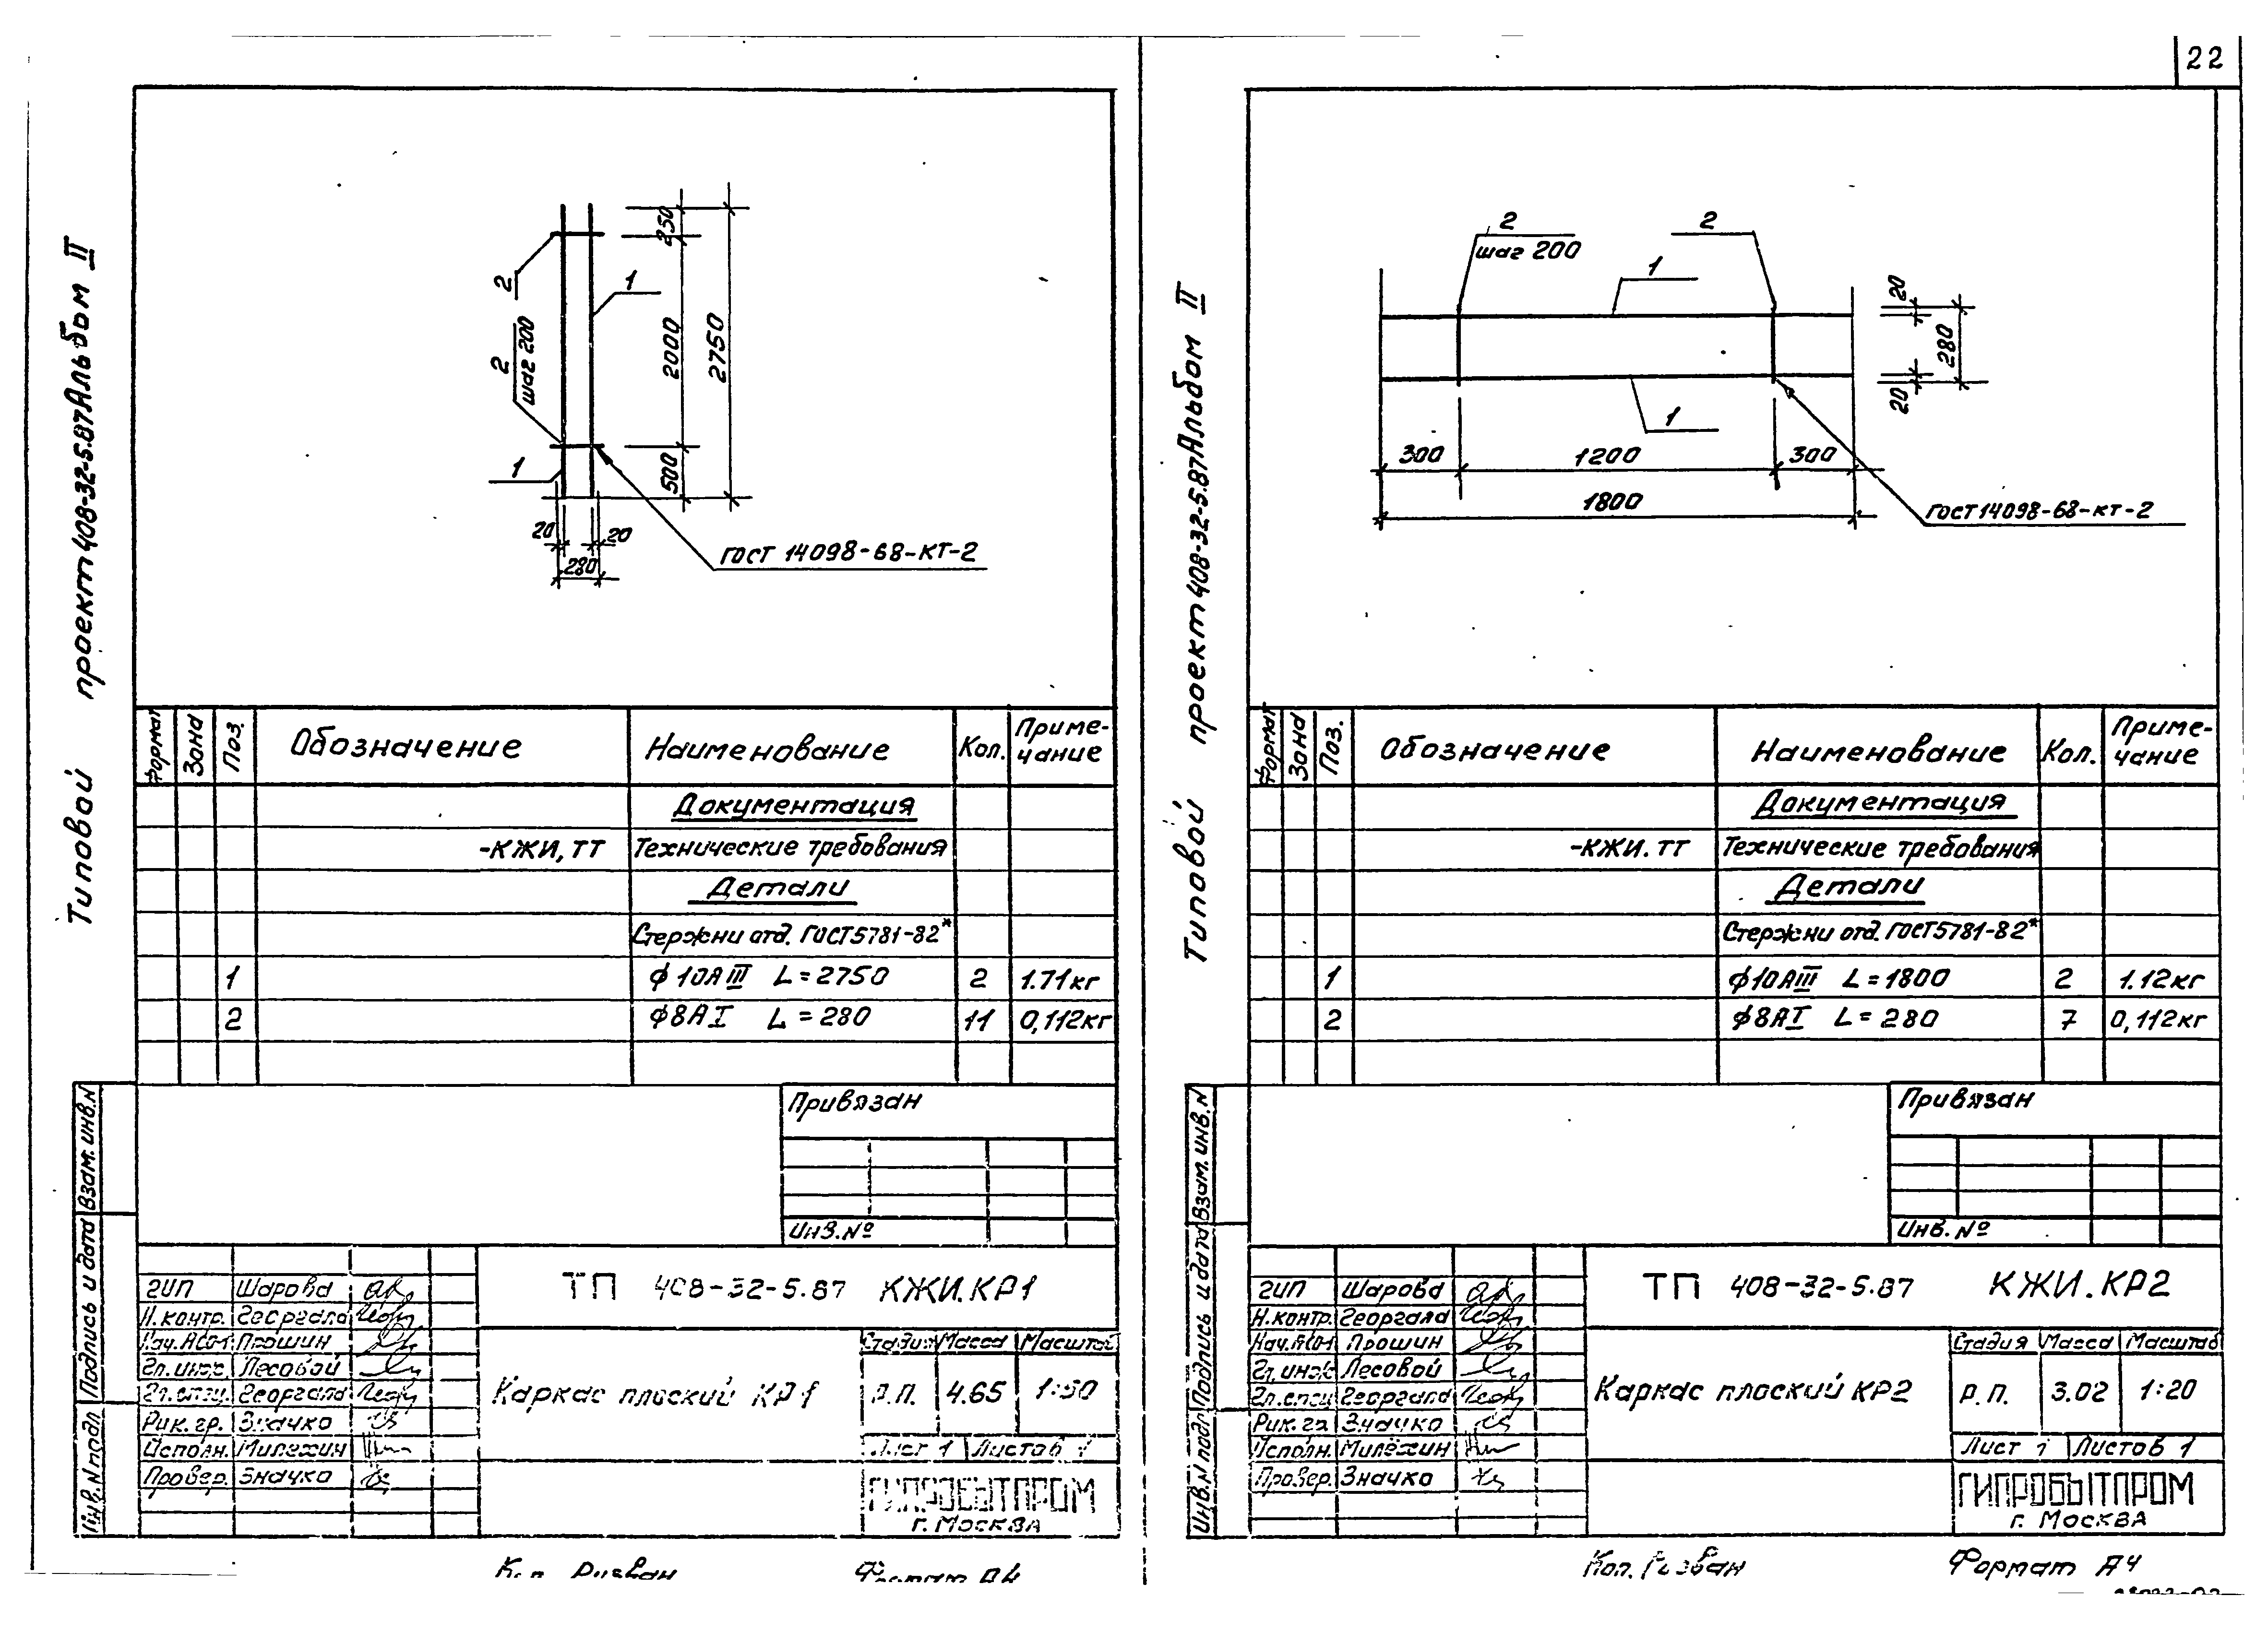 22
Типовой проект 408-32-5.87 Альбом II
2
2
шаг 200
1
1
250
2000
500
2750
20
20
280
ГОСТ 14098-68-КТ-2
Формат
Зона
Поз.
Обозначение
Наименование
Кол.
Приме-
чание
Документация
-КЖИ, ТТ Технические требования
Детали
Стержни отд. ГОСТ 5781-82*
1 ϕ10АIII L=2750 2 1.71кг
2 ϕ8АI L=280 11 0,112кг
Привязан
Инв.№
Взам. инв.N
Подпись и дата
Инв.N подл
ГИП Шарова
Н.контр. Георгала
Нач.АСО-1 Прошин
Гл.инж. Лесовой
Гл.спец. Георгала
Рук.гр. Значко
Исполн. Милехин
Провер. Значко
ТП 408-32-5.87 КЖИ.КР1
Каркас плоский КР1
Стадия Масса Масштаб
Р.П. 4.65
Лист 1 Листов 1
ГИПРОБЫТПРОМ
г. Москва
Типовой проект 408-32-5.87 Альбом II
2
шаг 200
2
1
1
20
280
20
300
1200
300
1800
ГОСТ 14098-68-КТ-2
Формат
Зона
Поз.
Обозначение
Наименование
Кол.
Приме-
чание
Документация
-КЖИ. ТТ Технические требования
Детали
Стержни отд. ГОСТ 5781-82*
1 ϕ10АIII L=1800 2 1.12кг
2 ϕ8АI L=280 7 0,112кг
Привязан
Инв.№
Взам. инв.N
Подпись и дата
Инв.N подл
ГИП Шарова
Н.контр. Георгала
Нач.АСО-1 Прошин
Гл.инж Лесовой
Гл.спец Георгала
Рук.гр Значко
Исполн. Милёхин
Провер. Значко
ТП 408-32-5.87 КЖИ.КР2
Каркас плоский КР2
Стадия Масса Масштаб
Р.П. 3.02 1:20
Лист 1 Листов 1
ГИПРОБЫТПРОМ
г. Москва
Кол. Ризван
Формат А4